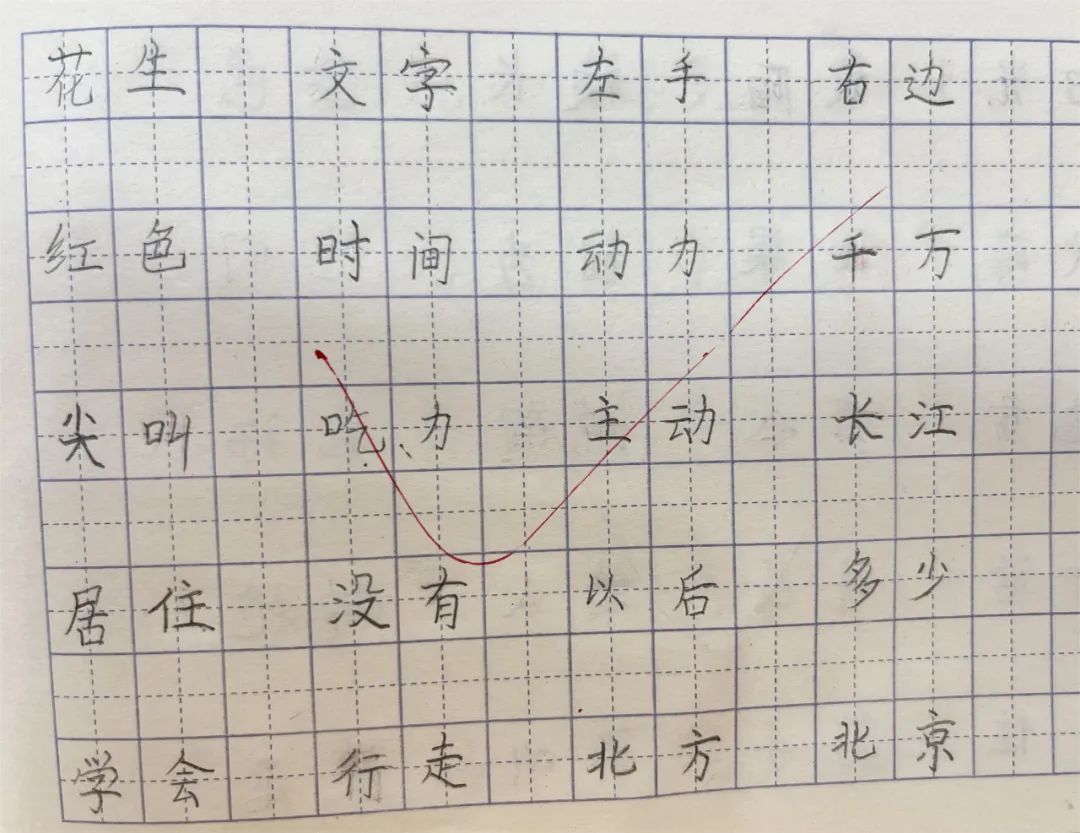 花生 文字 左手 右边
红色 时间 动力 千万
尖叫 吃力 主动 长江
居住 没有 以后 多少
学会 行走 北方 北京